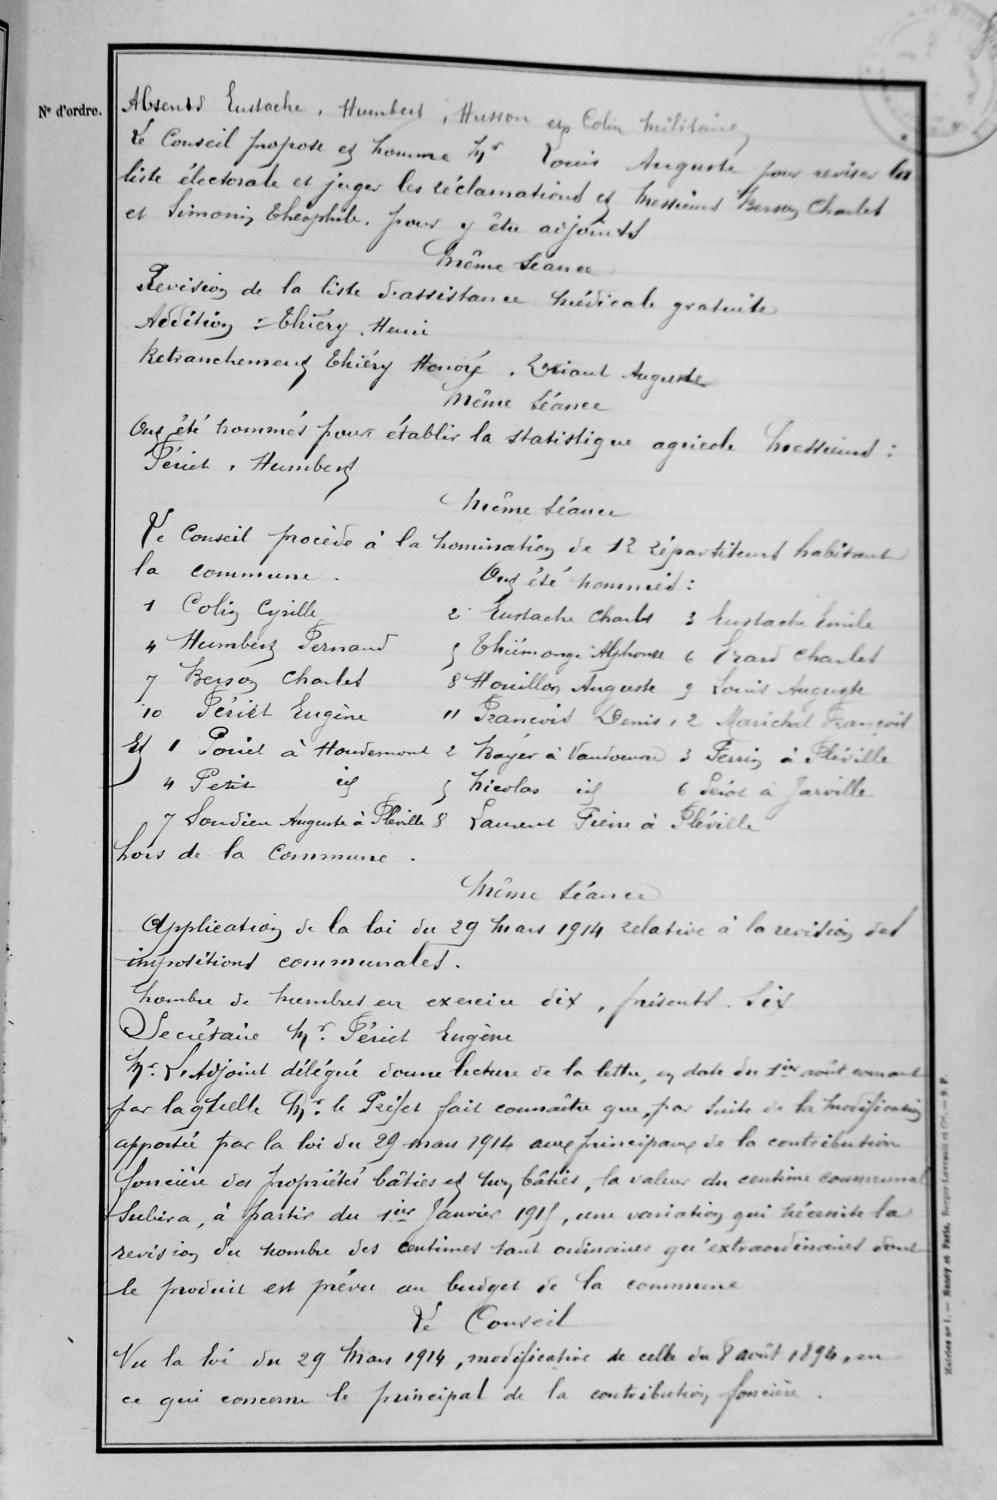 N° d'ordre.
Absents Eustache, Humbert, Husson et Colin militaires
Le Conseil propose et nomme Mr Louis Auguste pour reviser la
liste électorale et juger les réclamations et Messieurs Berson Charles
et Simonin Théophile. pour y être adjoints
Même Séance
Revision de la liste d'assistance médicale gratuite
Addition : Thiéry Henri
Retranchement Thiéry Honoré, Auguste
Même Séance
Ont été nommés pour établir la statistique agricole Messieurs :
Périet, Humbert
Même Séance
Le Conseil procède à la nomination de 12 répartiteurs habitant
la commune. Ont été nommés :
1 Colin Cyrille 2 Eustache Charles 3 Eustache Emile
4 Humbert Fernand 5 Thiémonge Alphonse 6 Erard Charles
7 Berson Charles 8 Houillon Auguste 9 Louis Auguste
10 Périet Eugène 11 François Denis, 12 Marichal François
Et 1 Poriel à Houdemont 2 Bayer à Vandoeuvre 3 Perrin à Fléville
4 Petit id 5 Nicolas id 6 à Jarville
7 Auguste à Fléville 8 Laurent Pierre à Fléville
hors de la Commune.
Même Séance
Application de la loi du 29 Mars 1914 relative à la revision des
impositions communales.
Nombre de membres en exercice dix, présents. Six
Secrétaire Mr. Périet Eugène
Mr. L'Adjoint délégué donne lecture de la lettre, en date du 1ier août courant
par laquelle Mr. le Préfet fait connaître que, par suite de la modification
apportée par la loi du 29 mars 1914 aux principaux de la contribution
foncière des propriétés bâties et non bâties, la valeur du centime communal
Subira, à partir du 1ier Janvier 1915, une variation qui nécessite la
revision du nombre des centimes tant ordinaires qu'extraordinaires dont
le produit est prévu au budget de la commune
Le Conseil
Vu la loi du 29 Mars 1914, modificative de celle du 8 août 1894, en
ce qui concerne le principal de la contribution foncière.
Mairies n° 1. — Nancy et Paris, Berger-Levrault et Cie. — 9 P.